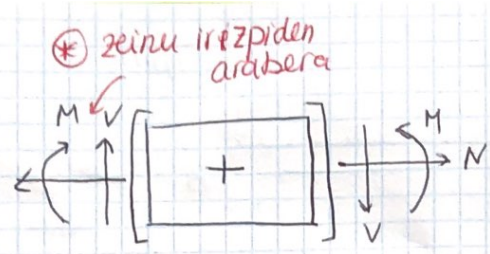 * zeinu irizpiden
arabera
M V
+
M
N
V